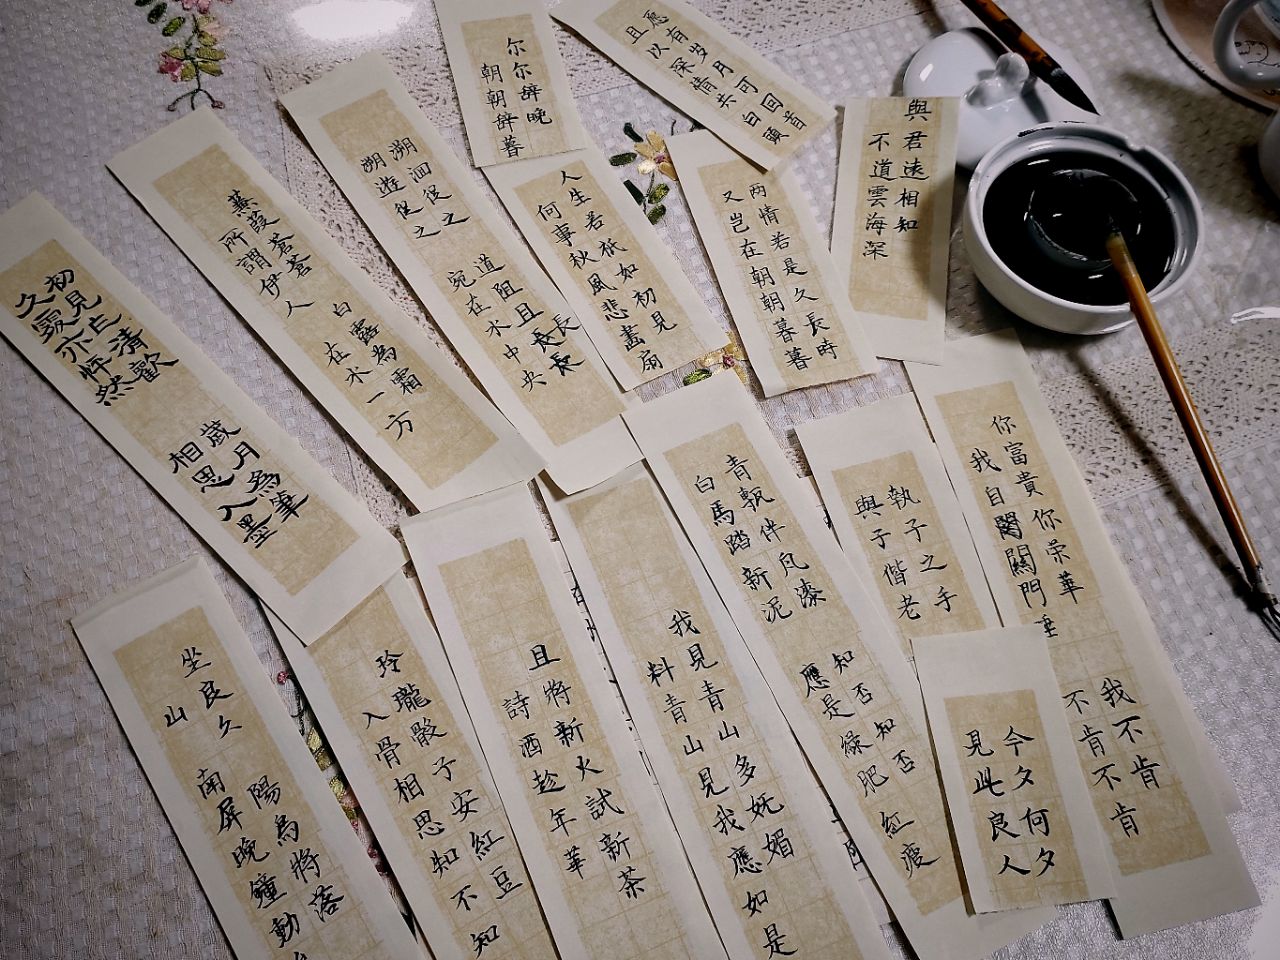 尔尔辞晚
朝朝辞暮
愿有岁月可回首
且以深情共白頭
與君遠相知
不道雲海深
两情若是久長時
又岂在朝朝暮暮
人生若祇如初見
何事秋風悲畵扇
溯洄従之 道阻且長
溯遊従之 宛在水中央
蒹葭蒼蒼 白露為霜
所謂伊人 在水一方
初見亦清歡 歲月為筆
久處亦怦然 相思入墨
你富貴你荣華
我自閣關門
我不肯
不肯不肯
執子之手
與子偕老
青瓦伴凡漆 知否知否
白馬踏新泥 應是綠肥紅瘦
今夕何夕
見此良人
我見青山多妩媚
料青山見我應如是
且將新火試新茶
詩酒趁年華
玲瓏骰子安紅豆
入骨相思知不知
坐良久 陽烏將落
山 南屏晚鐘動